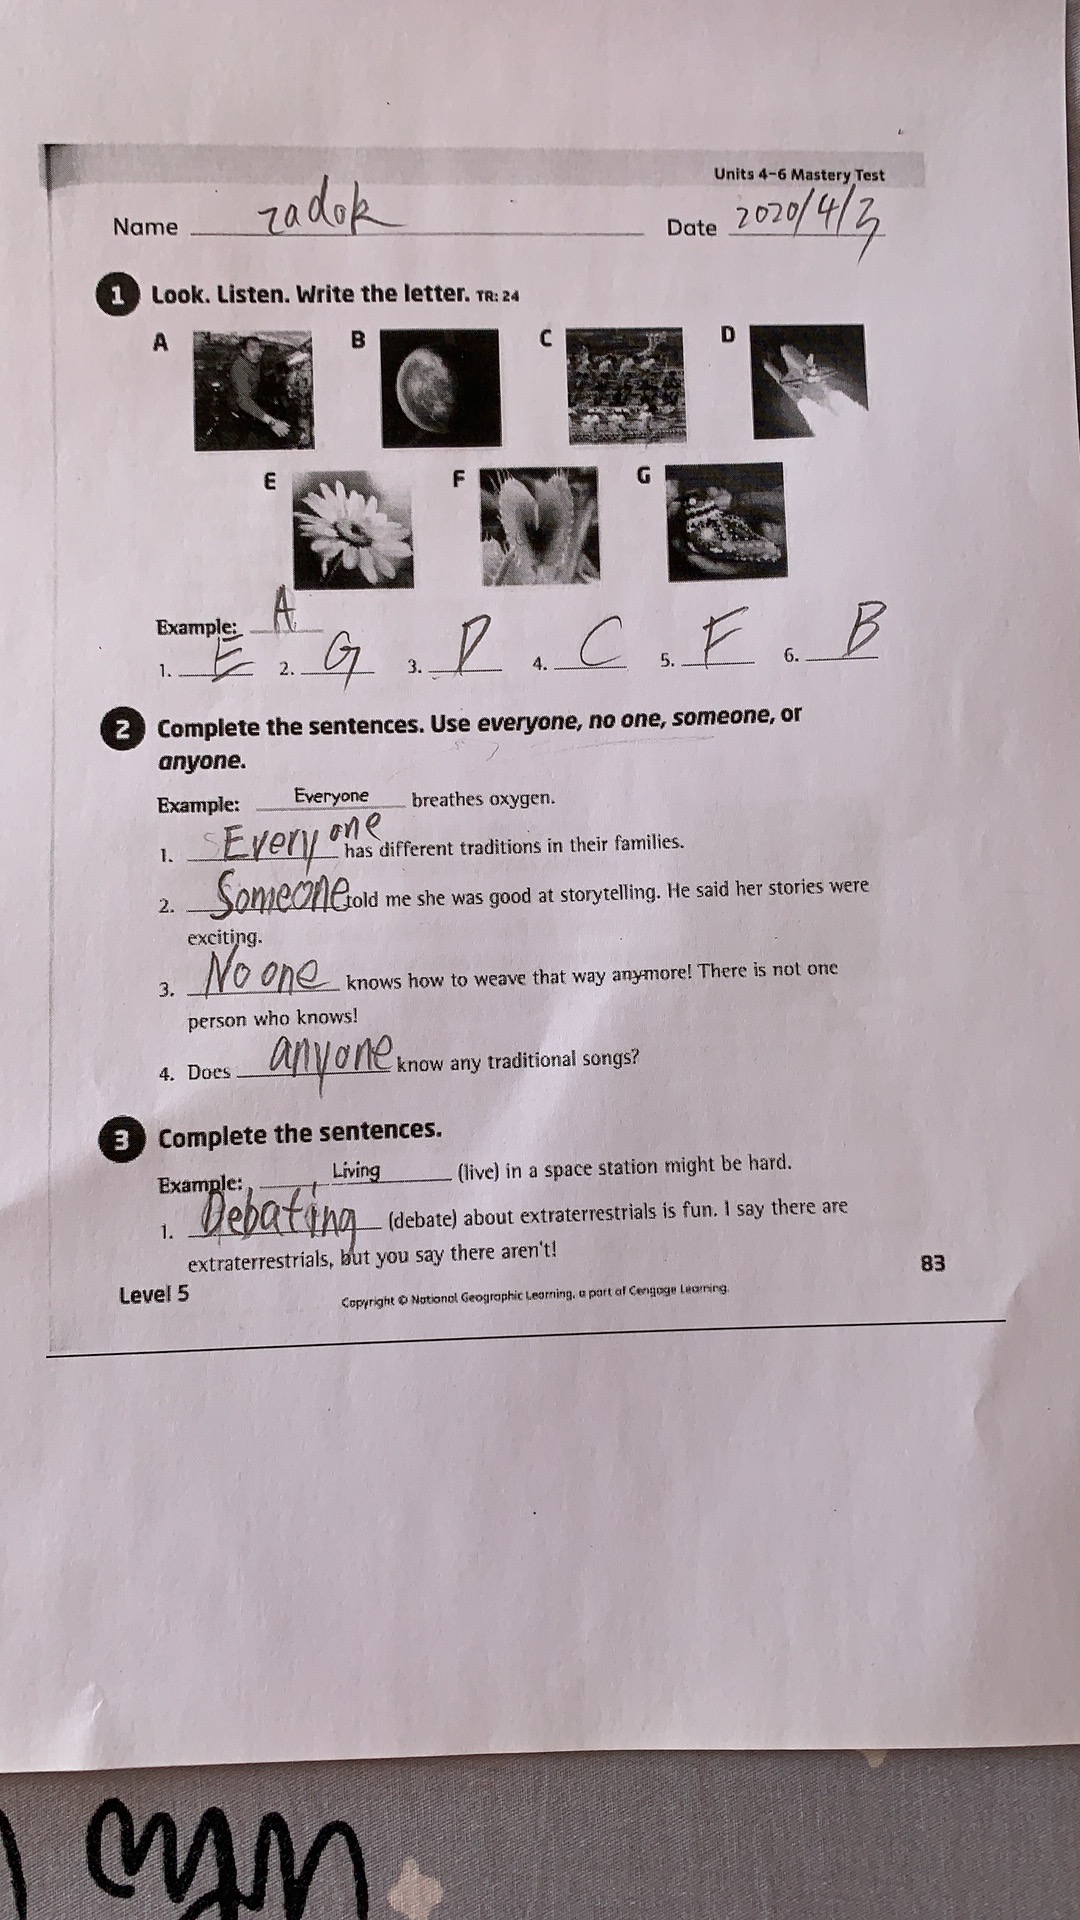 Units 4-6 Mastery Test
Name zadok Date 2020/4/3
1 Look. Listen. Write the letter. TR: 24
A B C D
E F G
Example: A
1. E 2. G 3. D 4. C 5. F 6. B
2 Complete the sentences. Use everyone, no one, someone, or
anyone.
Example: Everyone breathes oxygen.
1. Everyone has different traditions in their families.
2. Someone told me she was good at storytelling. He said her stories were
exciting.
3. No one knows how to weave that way anymore! There is not one
person who knows!
4. Does anyone know any traditional songs?
3 Complete the sentences.
Example: Living (live) in a space station might be hard.
1. Debating (debate) about extraterrestrials is fun. I say there are
extraterrestrials, but you say there aren't!
83
Level 5
Copyright © National Geographic Learning, a part of Cengage Learning.